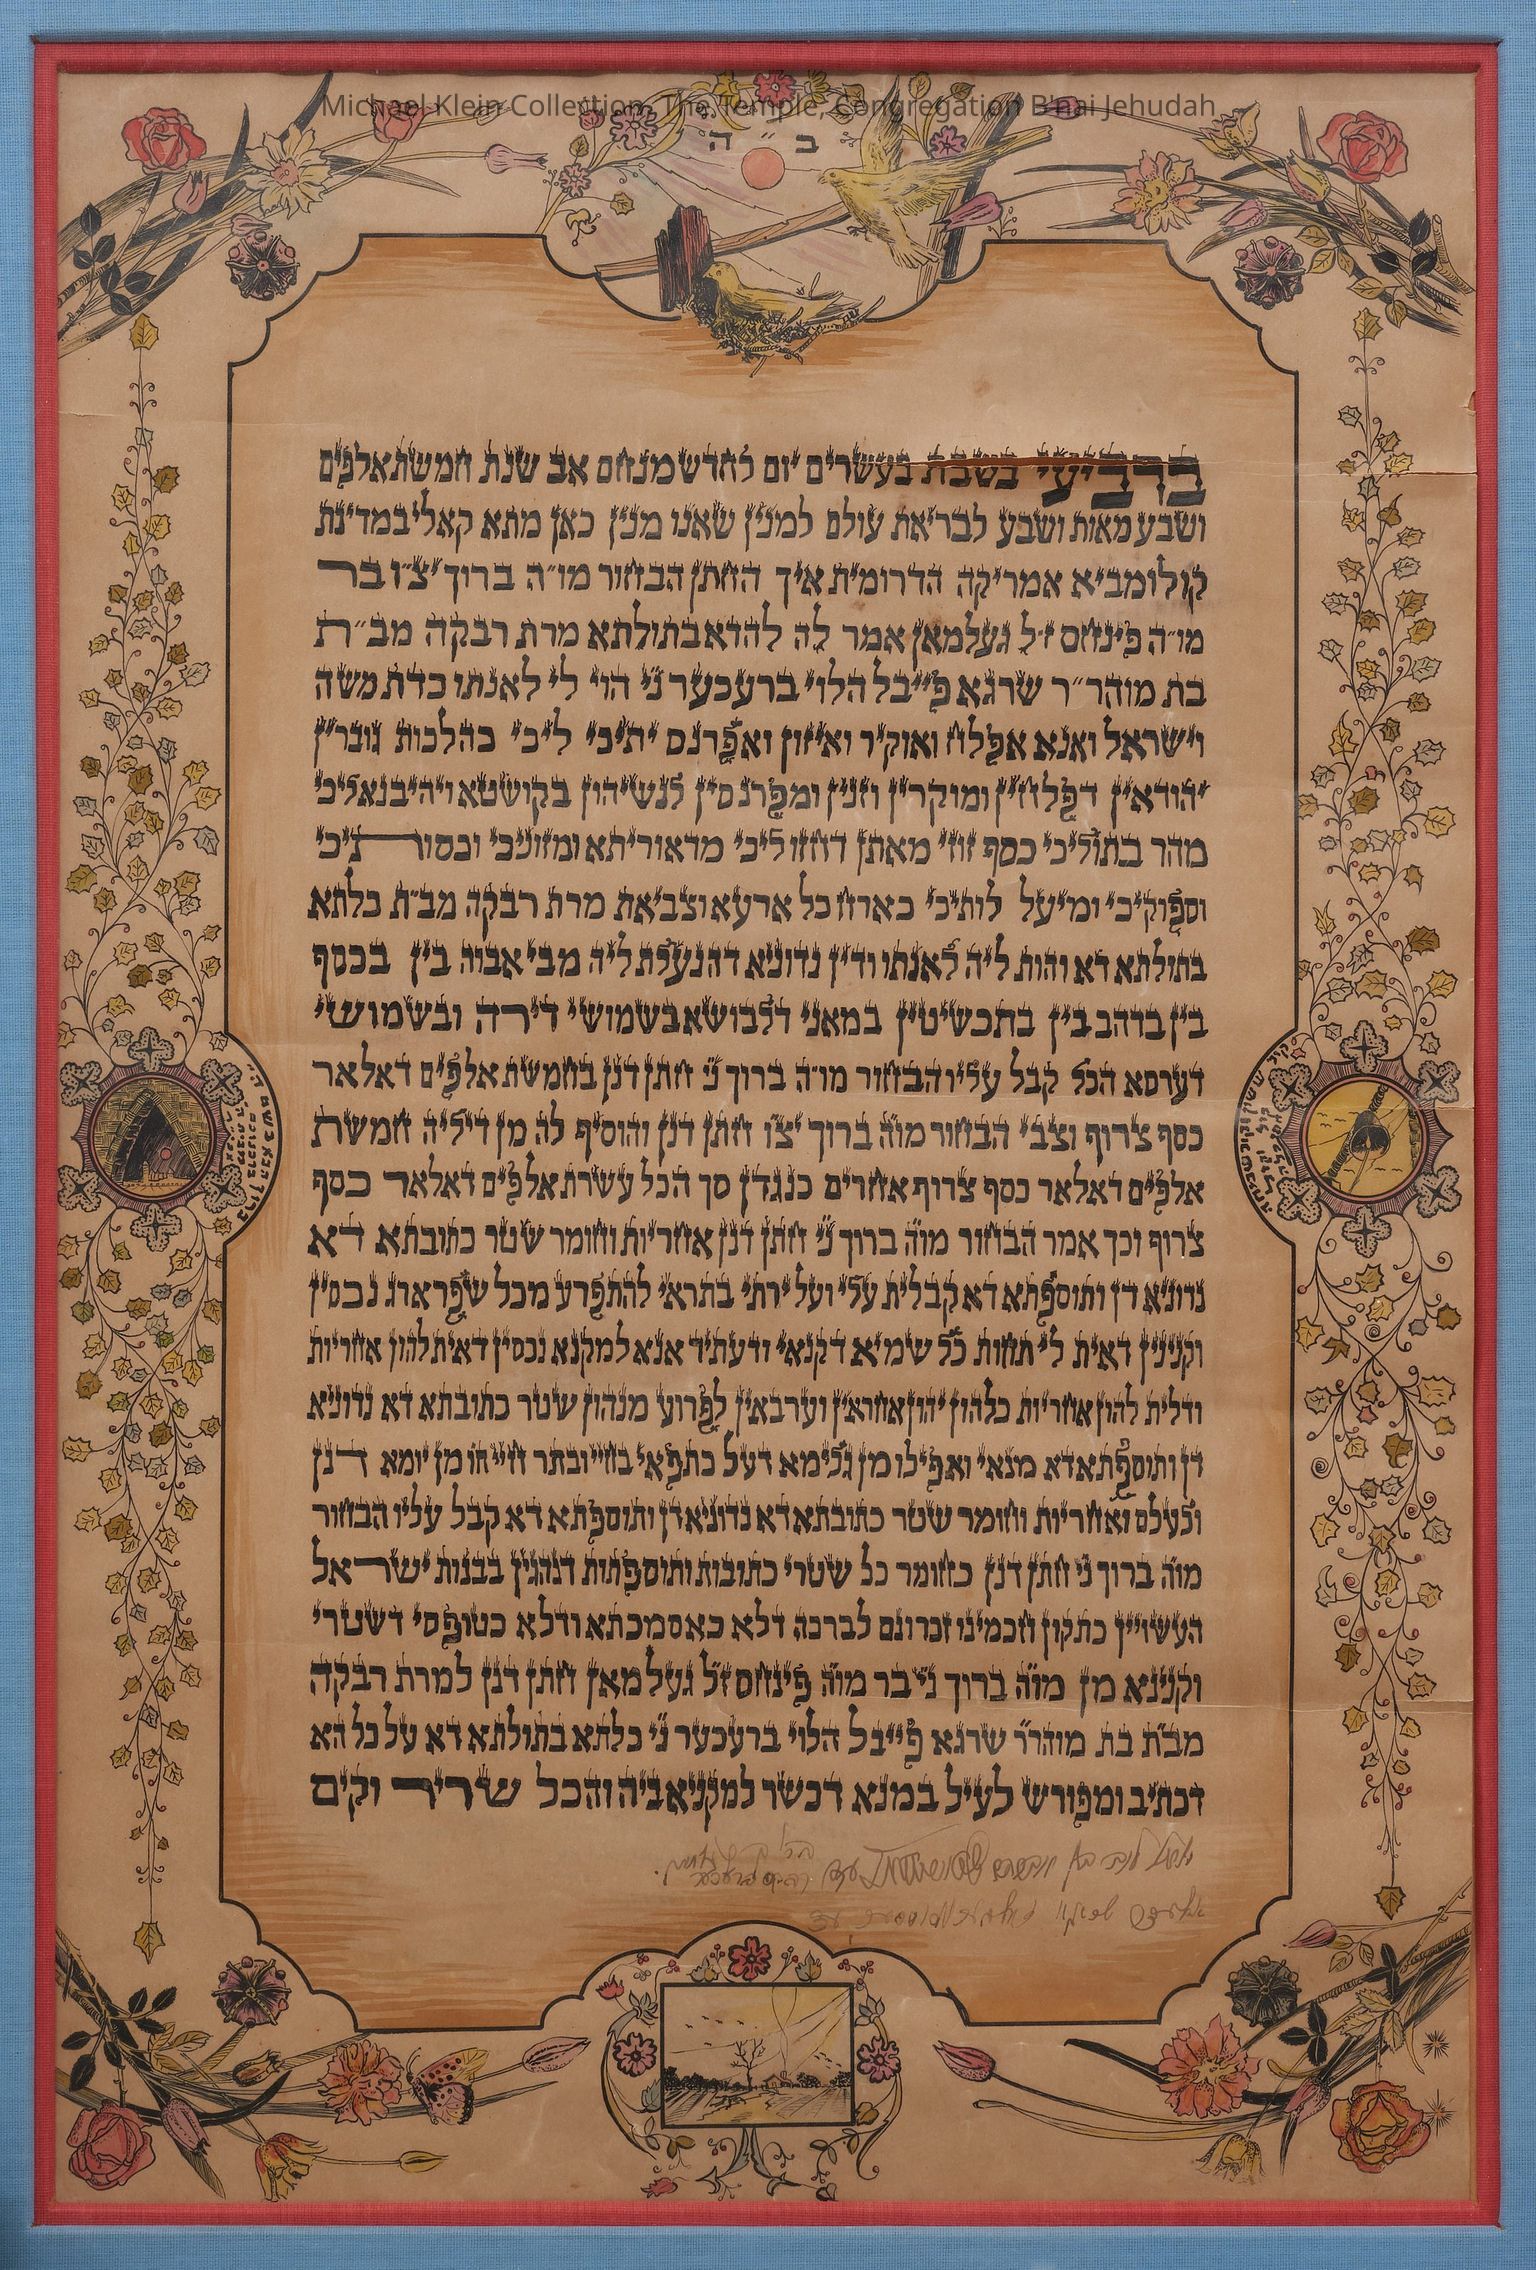 Michael Klein Collection, The Temple, Congregation B'nai Jehudah
ב״ה
ברביעי בשבת בעשרים יום לחדש מנחם אב שנת חמשת אלפים
ושבע מאות ושבע לבריאת עולם למנין שאנו מנין כאן מתא קאלי במדינת
קולומביא אמריקה הדרומית איך החתן הבחור מו״ה ברוך יצ״ו בר
מו״ה פינחס ז״ל געלמאן אמר לה להדא בתולתא מרת רבקה מב״ת
בת מוהר״ר שרגא פייבל הלוי ברעכער ני׳ הוי לי לאנתו כדת משה
וישראל ואנא אפלח ואוקיר ואיזון ואפרנס יתיכי ליכי כהלכות גוברין
יהודאין דפלחין ומוקרין וזנין ומפרנסין לנשיהון בקושטא ויהיבנא ליכי
מהר בתוליכי כסף זוזי מאתן דחזו ליכי מדאוריתא ומזוניכי וכסותיכי
וספוקיכי ומיעל לותיכי כארח כל ארעא וצביאת מרת רבקה מב״ת כלתא
בתולתא דא והות ליה לאנתו ודין נדוניא דהנעלת ליה מבי אבוה בין בכסף
בין בדהב בין בתכשיטין במאני דלבושא בשמושי דירה ובשמושי
דערסא הכל קבל עליו הבחור מו״ה ברוך ני׳ חתן דנן בחמשת אלפים דאלאר
כסף צרוף וצבי הבחור מו״ה ברוך יצ״ו חתן דנן והוסיף לה מן דיליה חמשת
אלפים דאלאר כסף צרוף אחרים כנגדן סך הכל עשרת אלפים דאלאר כסף
צרוף וכך אמר הבחור מו״ה ברוך ני׳ חתן דנן אחריות וחומר שטר כתובתא דא
נדוניא דן ותוספתא דא קבלית עלי ועל ירתי בתראי להתפרע מכל שפר ארג נכסין
וקנינין דאית לי תחות כל שמיא דקנאי ודעתיד אנא למקנא נכסין דאית להון אחריות
ודלית להון אחריות כלהון יהון אחראין וערבאין לפרוע מנהון שטר כתובתא דא נדוניא
דן ותוספתא דא מנאי ואפילו מן גלימא דעל כתפאי בחיי ובתר חיי חו מן יומא דנן
ולעלם ואחריות וחומר שטר כתובתא דא נדוניא דן ותוספתא דא קבל עליו הבחור
מו״ה ברוך ני׳ חתן דנן כחומר כל שטרי כתובות ותוספתות דנהגין בבנות ישראל
העשויין כתקון חכמינו זכרונם לברכה דלא כאסמכתא ודלא כטופסי דשטרי
וקנינא מן מו״ה ברוך ני׳ בר מו״ה פינחס ז״ל געלמאן חתן דנן למרת רבקה
מב״ת בת מוהר״ר שרגא פייבל הלוי ברעכער ני׳ כלתא בתולתא דא על כל הא
דכתיב ומפורש לעיל במנא דכשר למקניא ביה והכל שריר וקים